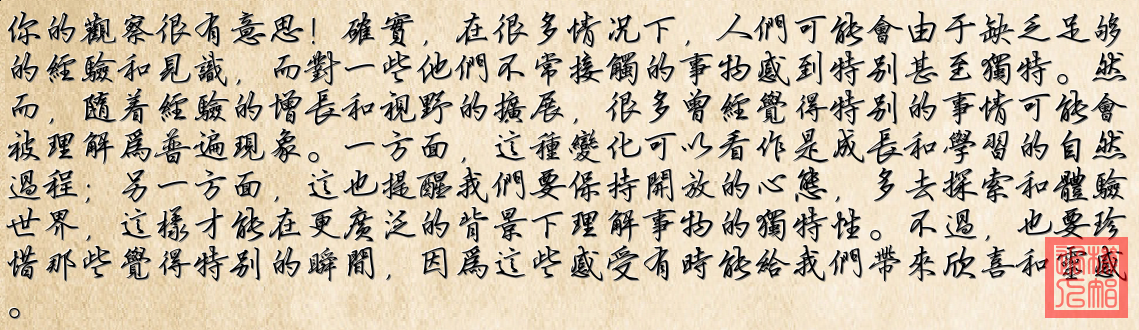 你的觀察很有意思！確實，在很多情况下，人們可能會由于缺乏足够
的經驗和見識，而對一些他們不常接觸的事物感到特别甚至獨特。然
而，隨着經驗的增長和視野的擴展，很多曾經覺得特别的事情可能會
被理解爲普遍現象。一方面，這種變化可以看作是成長和學習的自然
過程；另一方面，這也提醒我們要保持開放的心態，多去探索和體驗
世界，這樣才能在更廣泛的背景下理解事物的獨特性。不過，也要珍
惜那些覺得特别的瞬間，因爲這些感受有時能給我們帶來欣喜和靈感
。